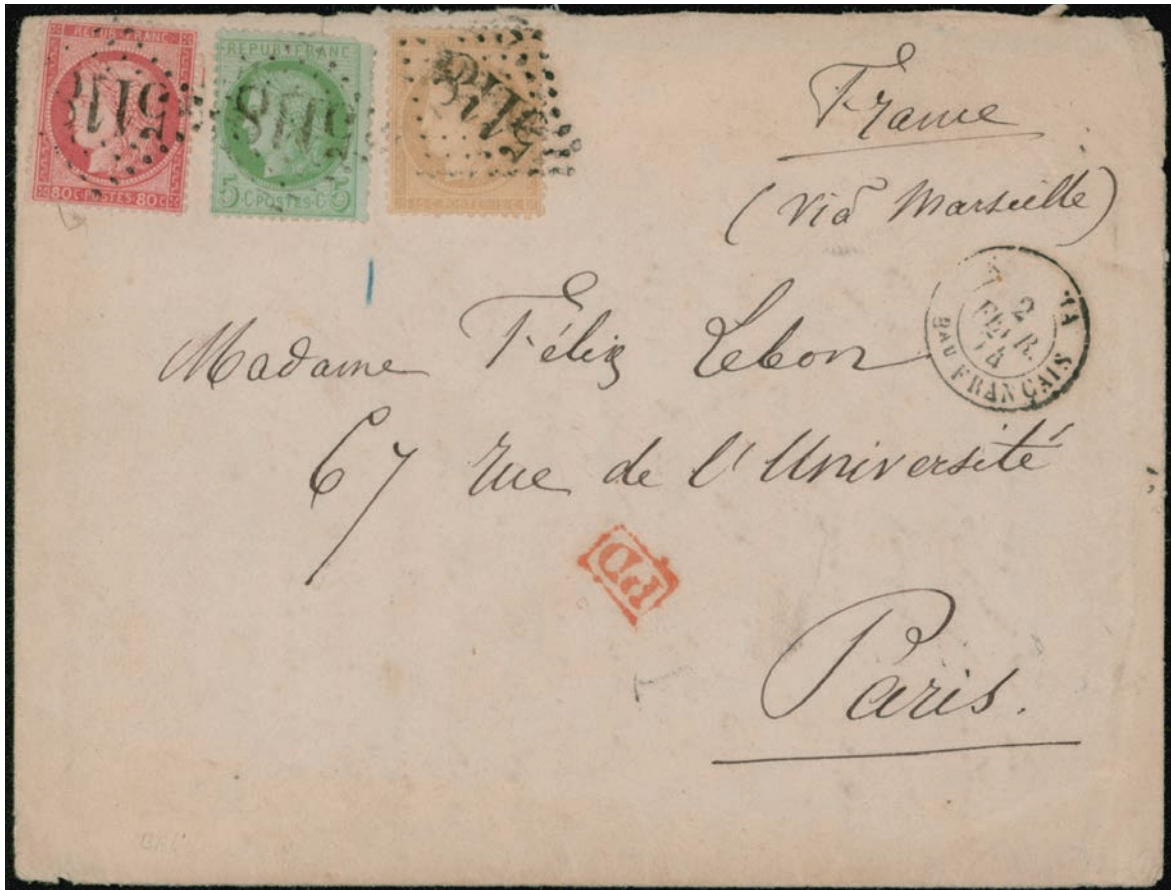 REPUB·FRANC
80C·POSTES·80C
5118
REPUB·FRANC
5·C·POSTES·C·5
5118
5118
France
(Viâ Marseille)
2
FEVR.
74
Bau FRANÇAIS
Madame Félix Lebon
67 rue de l'Université
PD
Paris.